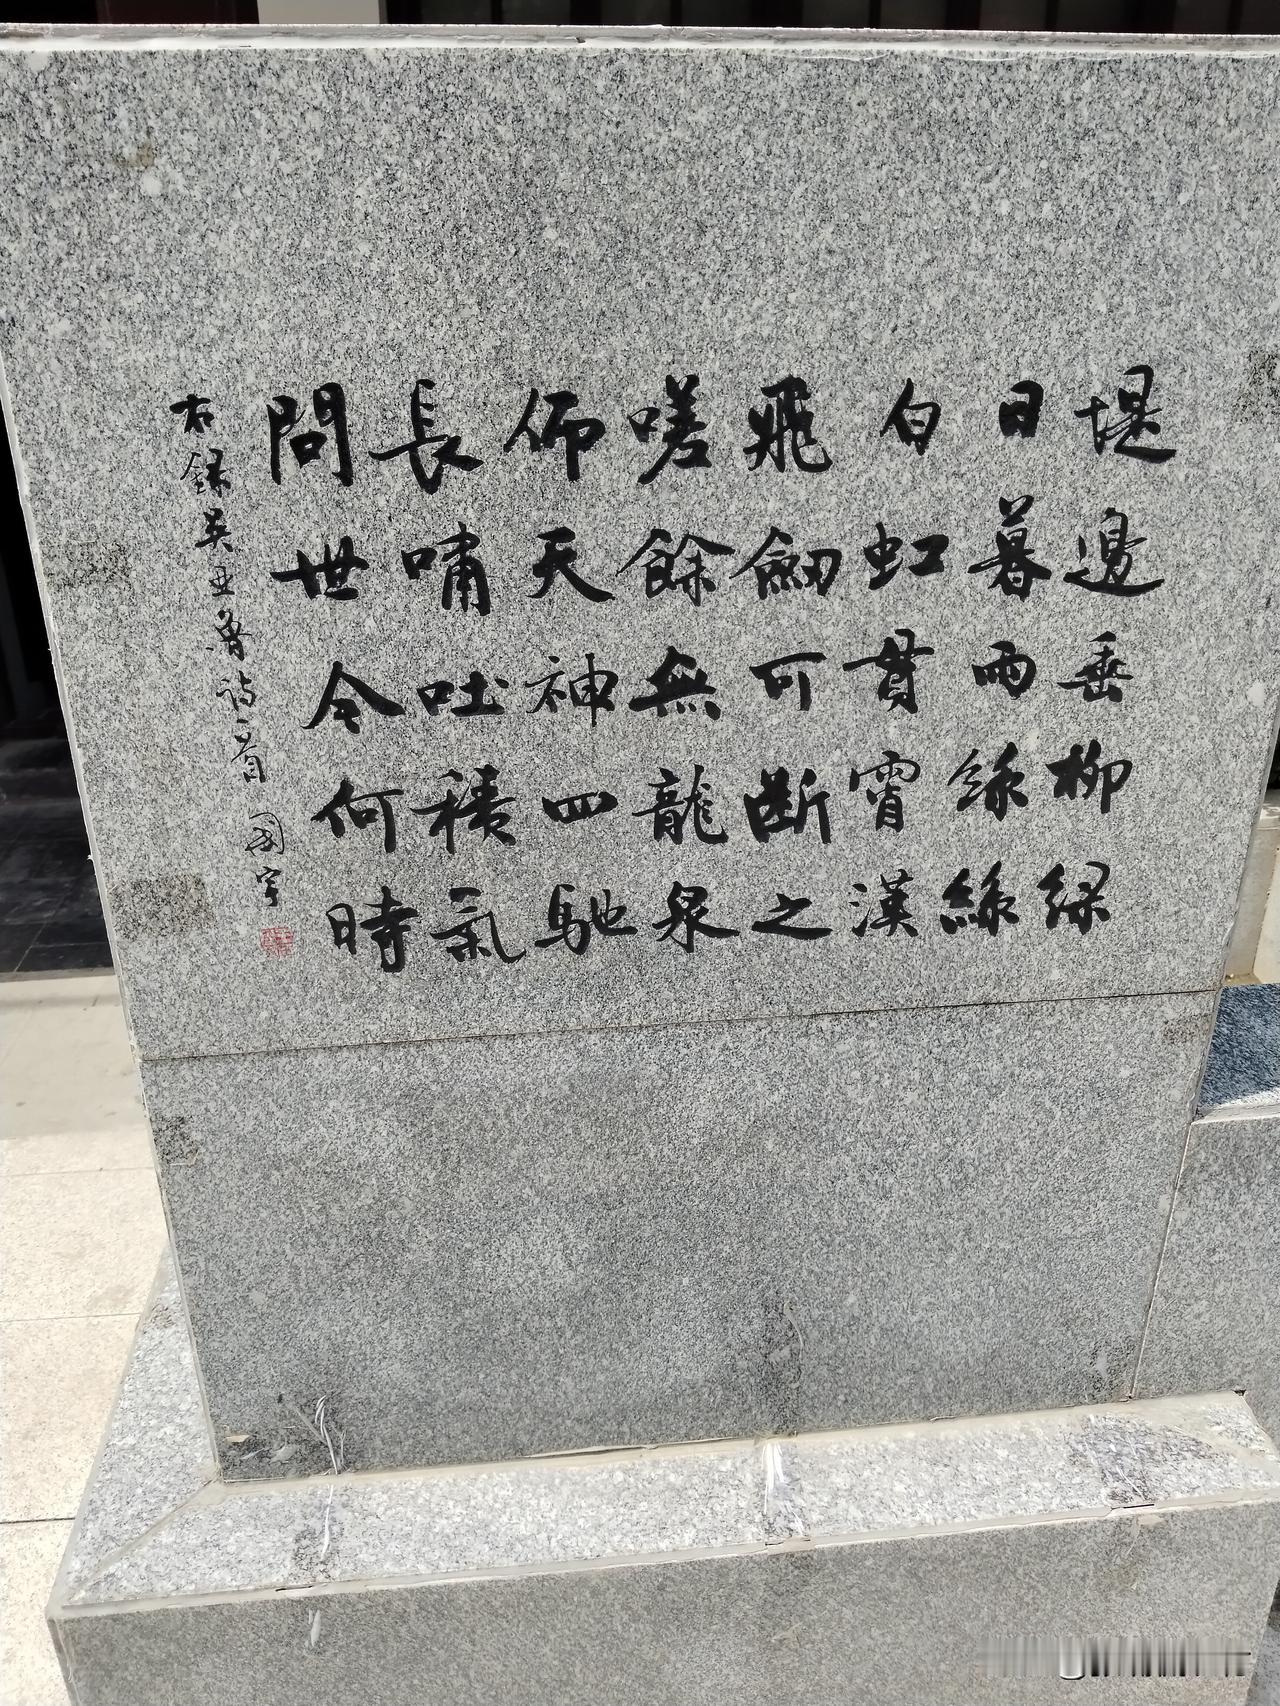 堤邊垂柳綠
日暮雨絲絲
白虹貫霄漢
飛劒可斷之
嗟餘無龍泉
仰天神四馳
長嘯吐積氣
問世令何時
右録吴亚魯詩一首 國宇